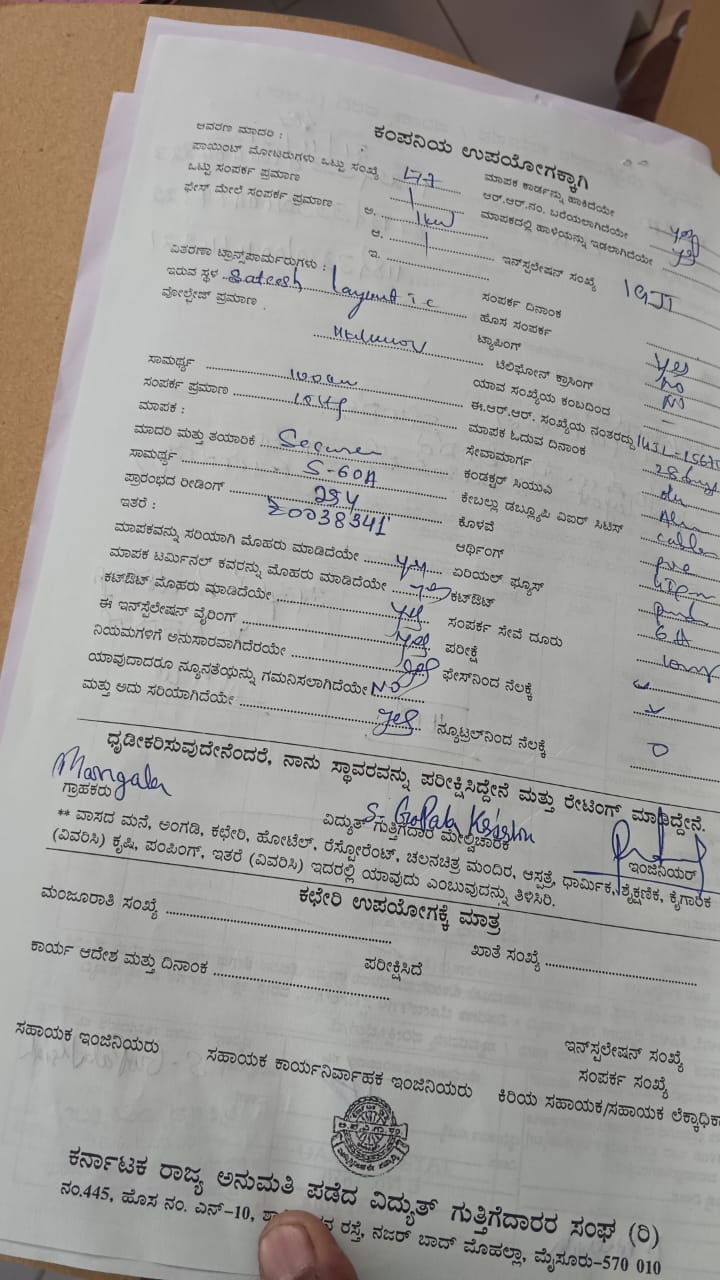 ಕಂಪನಿಯ ಉಪಯೋಗಕ್ಕಾಗಿ
ಆವರಣ ಮಾದರಿ :
ಪಾಯಿಂಟ್ ಮೋಟರುಗಳು ಒಟ್ಟು ಸಂಖ್ಯೆ
ಒಟ್ಟು ಸಂಪರ್ಕ ಪ್ರಮಾಣ 1
ಫೇಸ್ ಮೇಲೆ ಸಂಪರ್ಕ ಪ್ರಮಾಣ ಅ. 1kw
ಆ. 1
ಇ.
ಮಾಪಕ ಕಾರ್ಡನ್ನು ಹಾಕಿದೆಯೇ
ಆರ್.ಆರ್.ನಂ. ಬರೆಯಲಾಗಿದೆಯೇ yes
ಮಾಪಕದಲ್ಲಿ ಹಾಳೆಯನ್ನು ಇಡಲಾಗಿದೆಯೇ yes
ಇನ್ಸ್‌ಲೇಷನ್ ಸಂಖ್ಯೆ
ವಿತರಣಾ ಟ್ರಾನ್ಸ್‌ಪಾರ್ಮರುಗಳು :
ಇರುವ ಸ್ಥಳ Sateesh Layout
ವೋಲ್ಟೇಜ್ ಪ್ರಮಾಣ
ಸಂಪರ್ಕ ದಿನಾಂಕ
ಹೊಸ ಸಂಪರ್ಕ yes
ಟ್ಯಾಪಿಂಗ್ NO
ಟೆಲಿಫೋನ್ ಕ್ರಾಸಿಂಗ್ NO
ಸಾಮರ್ಥ್ಯ
ಸಂಪರ್ಕ ಪ್ರಮಾಣ
ಮಾಪಕ :
ಮಾದರಿ ಮತ್ತು ತಯಾರಿಕೆ Secure
ಸಾಮರ್ಥ್ಯ 5-60A
ಪ್ರಾರಂಭದ ರೀಡಿಂಗ್ 254
ಇತರೆ : 20038341
ಯಾವ ಸಂಖ್ಯೆಯ ಕಂಬದಿಂದ -
ಈ.ಆರ್.ಆರ್. ಸಂಖ್ಯೆಯ ನಂತರದ್ದು
ಮಾಪಕ ಓದುವ ದಿನಾಂಕ
ಸೇವಾಮಾರ್ಗ
ಕಂಡಕ್ಟರ್ ಸಿಯುವಿ
ಕೇಬಲ್ಲು ಡಬ್ಲ್ಯೂಪಿ ವಿಐರ್ ಸಿಟಿಸ್
ಕೊಳವೆ
ಆರ್ಥಿಂಗ್
ಮಾಪಕವನ್ನು ಸರಿಯಾಗಿ ಮೊಹರು ಮಾಡಿದೆಯೇ yes ಏರಿಯಲ್ ಫ್ಯೂಸ್
ಮಾಪಕ ಟರ್ಮಿನಲ್ ಕವರನ್ನು ಮೊಹರು ಮಾಡಿದೆಯೇ yes ಕಟ್‌ಔಟ್ 6A
ಕಟ್‌ಔಟ್ ಮೊಹರು ಮಾಡಿದೆಯೇ yes ಸಂಪರ್ಕ ಸೇವೆ ದೂರು
ಈ ಇನ್‌ಸ್ಪಲೇಷನ್ ವೈರಿಂಗ್ yes ಪರೀಕ್ಷೆ
ನಿಯಮಗಳಿಗೆ ಅನುಸಾರವಾಗಿದೆರೆಯೇ yes ಫೇಸ್‌ನಿಂದ ನೆಲಕ್ಕೆ
ಯಾವುದಾದರೂ ನ್ಯೂನತೆಯನ್ನು ಗಮನಿಸಲಾಗಿದೆಯೇ NO
ಮತ್ತು ಅದು ಸರಿಯಾಗಿದೆಯೇ yes ನ್ಯೂಟ್ರಲ್‌ನಿಂದ ನೆಲಕ್ಕೆ 0
ಧೃಡೀಕರಿಸುವುದೇನೆಂದರೆ, ನಾನು ಸ್ಥಾವರವನ್ನು ಪರೀಕ್ಷಿಸಿದ್ದೇನೆ ಮತ್ತು ರೇಟಿಂಗ್ ಮಾಡಿದ್ದೇನೆ.
Mangala S. Gopala Krishna
ಗ್ರಾಹಕರು ವಿದ್ಯುತ್ ಗುತ್ತಿಗೆದಾರ ಮೇಲ್ವಿಚಾರಕ ಇಂಜಿನಿಯರ್
** ವಾಸದ ಮನೆ, ಅಂಗಡಿ, ಕಛೇರಿ, ಹೋಟೆಲ್, ರೆಸ್ಟೋರೆಂಟ್, ಚಲನಚಿತ್ರ ಮಂದಿರ, ಆಸ್ಪತ್ರೆ, ಧಾರ್ಮಿಕ, ಶೈಕ್ಷಣಿಕ, ಕೈಗಾರಿಕೆ
(ವಿವರಿಸಿ) ಕೃಷಿ, ಪಂಪಿಂಗ್, ಇತರೆ (ವಿವರಿಸಿ) ಇದರಲ್ಲಿ ಯಾವುದು ಎಂಬುವುದನ್ನು ತಿಳಿಸಿರಿ.
ಕಛೇರಿ ಉಪಯೋಗಕ್ಕೆ ಮಾತ್ರ
ಮಂಜೂರಾತಿ ಸಂಖ್ಯೆ ಖಾತೆ ಸಂಖ್ಯೆ
ಕಾರ್ಯ ಆದೇಶ ಮತ್ತು ದಿನಾಂಕ ಪರೀಕ್ಷಿಸಿದೆ
ಇನ್‌ಸ್ಪಲೇಷನ್ ಸಂಖ್ಯೆ
ಸಂಪರ್ಕ ಸಂಖ್ಯೆ
ಸಹಾಯಕ ಇಂಜಿನಿಯರು ಸಹಾಯಕ ಕಾರ್ಯನಿರ್ವಾಹಕ ಇಂಜಿನಿಯರು ಕಿರಿಯ ಸಹಾಯಕ/ಸಹಾಯಕ ಲೆಕ್ಕಾಧಿಕಾ
ಕರ್ನಾಟಕ ರಾಜ್ಯ ಅನುಮತಿ ಪಡೆದ ವಿದ್ಯುತ್ ಗುತ್ತಿಗೆದಾರರ ಸಂಘ (ರಿ)
ನಂ.445, ಹೊಸ ನಂ. ಎನ್-10, ರಸ್ತೆ, ನಜರ್ ಬಾದ್ ಮೊಹಲ್ಲಾ, ಮೈಸೂರು-570 010